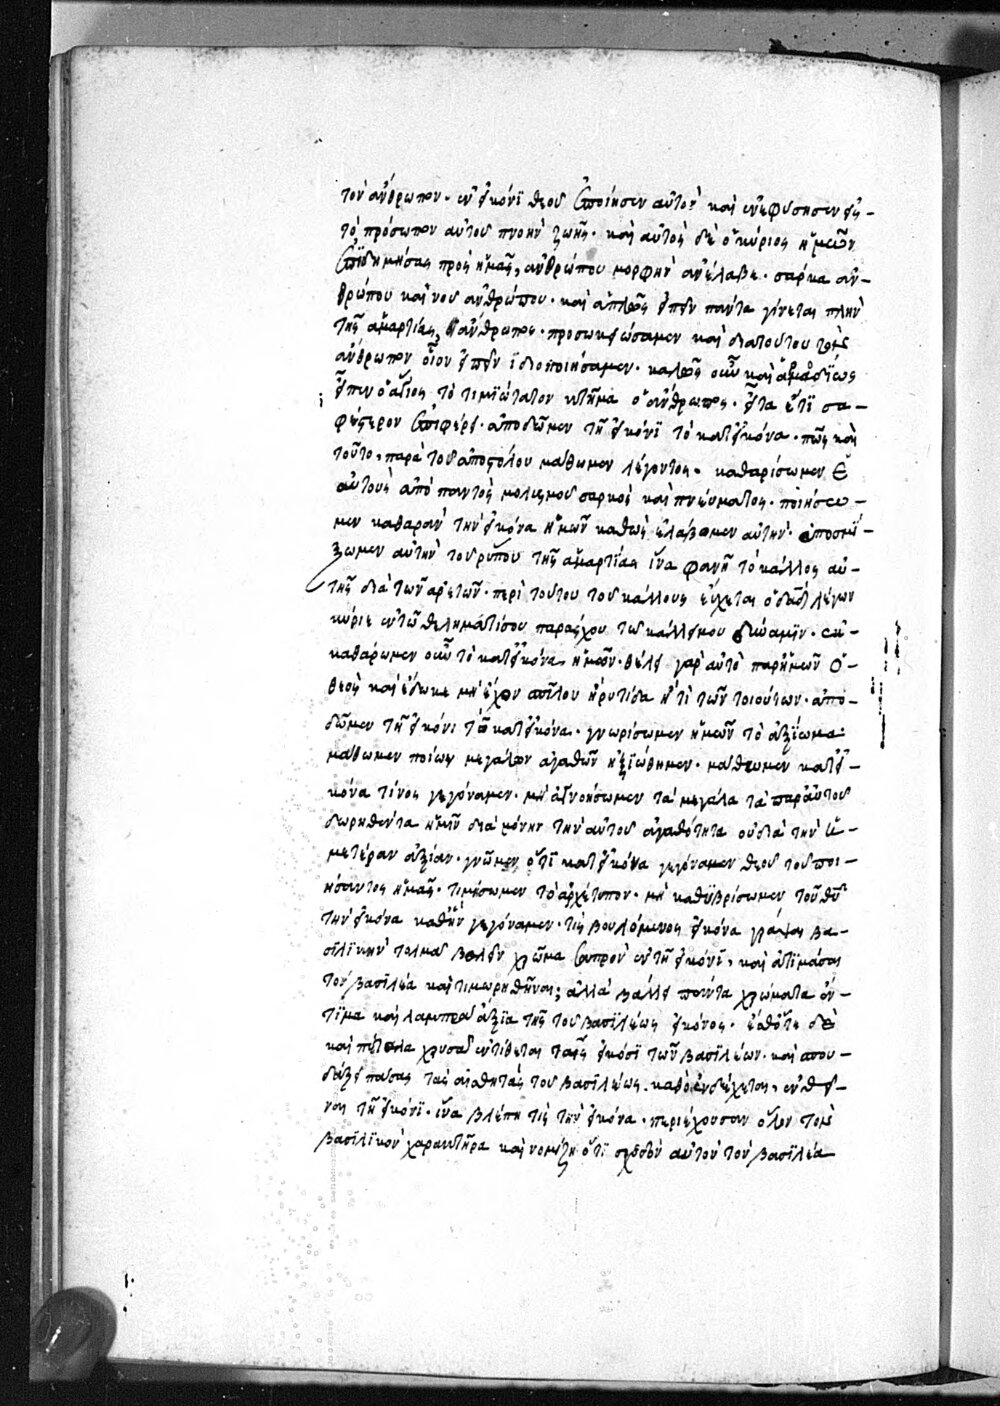 τὸν ἄνθρωπον· ἐν εἰκόνϊ θεοῦ ἐποίησεν αὐτὸν· καὶ ἐνεφύσησεν εἰς
τὸ πρόσωπον αὐτοῦ πνοὴν ζωῆς· καὶ αὐτὸς δὲ ὁ κύριος ἡμῶν
ἐπϊδημήσας πρὸς ἡμᾶς, ἀνθρώπου μορφὴν ἀνέλαβε· σάρκα ἀν-
θρώπου καὶ νοῦ ἀνθρώπου· καὶ ἁπλῶς εἰπεῖν πάντα γίνεται πλὴν
τῆς ἁμαρτίας, ἄνθρωπος· προσωκειώσαμεν καὶ διατοῦτου τὸν
ἄνθρωπον οἷον εἰπεῖν ἰδιοποιησάμεν· καλῶς οὖν καὶ
εἶπεν ὁ ἅγιος τὸ τιμϊώτατον κτῆμα ὁ ἄνθρωπος· εἶτα ἔτϊ σα-
φέστερον ἐπιφέρει· ἀποδῶμεν τῆ εἰκόνϊ τὸ κατεικόνα· πῶς καὶ
τοῦτο, παρὰ τοῦ ἀποστόλου μάθωμεν λέγοντος· καθαρίσωμεν ἑ
αὐτοὺς ἀπὸ παντὸς μολυσμοῦ σαρκὸς καὶ πνεύματος· ποιήσω-
μεν καθαρὰν τὴν εἰκόνα ἡμῶν καθὼς ἐλάβομεν αὐτὴν· ἀποσμί-
ξωμεν αὐτὴν τοῦ ρύπου τῆς ἁμαρτίας ἵνα φανῆ τὸ κάλλος αὐ-
τῆς διὰ τῶν ἀρετῶν· περὶ τούτου τοῦ κάλλους εὔχεται ὁ δαδ λέγων
κύριε ἐν τῶ θελήματί σου παράσχου τῶ κάλλει μου δύναμϊν· ἐκ-
καθάρωμεν οὖν τὸ κατεικόνα ἡμῶν· θέλει γὰρ αὐτὸ παρ ἡμῶν ὁ
θεὸς καὶ ἔδωκε μὴ ἔχον σπῖλον ἢ ρυτίδα ἤ τι τῶν τοιούτων· ἀπο-
δῶμεν τῆ εἰκόνι τὸ κατεικόνα· γνωρίσωμεν ἡμῶν τὸ ἀξίωμα·
μάθωμεν ποίων μεγάλων ἀγαθῶν ἠξιώθημεν· μάθωμεν κατεἰ-
κόνα τίνος γεγόναμεν· μὴ ἀγνοήσωμεν τὰ μεγάλα τὰ παρ αὐτοῦ
δωρηθέντα ἡμῖν διὰ μόνην τὴν αὐτοῦ ἀγαθότητα οὐ διὰ τὴν ἡ-
μετέραν ἀξίαν· γνῶμεν ὅτϊ κατεικόνα γεγόναμεν θεοῦ τοῦ ποι-
ήσαντος ἡμᾶς· τιμήσωμεν τὸ ἀρχέτυπον· μὴ καθυβρίσωμεν τοῦ θυ
τὴν εἰκόνα καθ ἣν γεγόναμεν· τίς βουλόμενος εἰκόνα γράψαι βα-
σϊλικὴν τολμᾶ βαλεῖν χρῶμα σαπρὸν ἐν τῆ εἰκόνϊ, καὶ ἀτιμάσαι
τὸν βασϊλέα καὶ τιμωρηθῆναι; ἀλλὰ βάλλει πάντα χρώματα ἔν-
τϊμα καὶ λαμπρὰ ἀξϊα τῆς τοῦ βασϊλέως εἰκόνος· ἔσθ ὅτε δὲ
καὶ πέταλα χρυσᾶ ἐντίθεται ταῖς εἰκόσϊ τῶν βασϊλέων· καὶ σπου-
δάζει πάσας τὰς ἐσθῆτας τοῦ βασϊλέως, καθὸ ἐνδέχεται, ἐνθεῖ-
ναι τῆ εἰκόνϊ· ἵνα βλέπη τις τὴν εἰκόνα, περιέχουσαν ὅλον τὸν
βασϊλϊκὸν χαρακτῆρα καὶ νομίζη ὅτϊ σχεδὸν αὐτὸν τὸν βασϊλέα